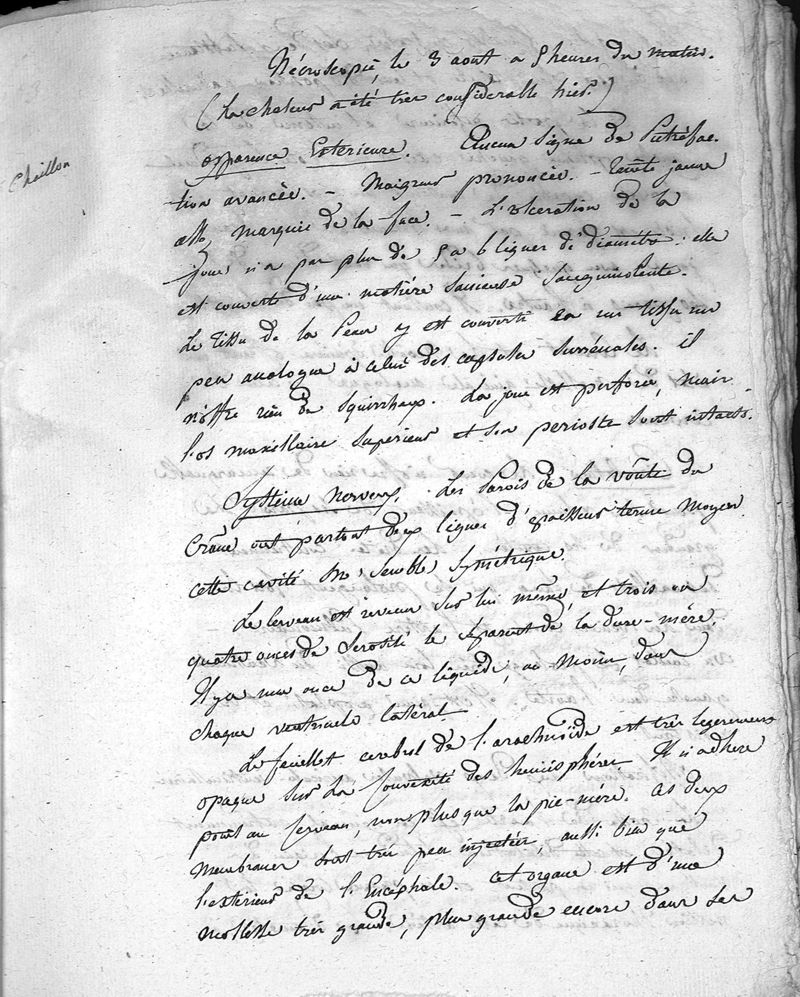 Nécroscopie, le 3 aout a 9 heures du matin.
(La chaleur a été trés considerable hier.)
Chaillon
apparence Extérieure. Aucun signe de Putréfac-
tion avancée. - Maigreur prononcée. - teinte jaune
assez marquée de la face. - L'ulceration de la
joue n'a pas plus de 5 a 6 lignes de diamétre: elle
est couverte d'une matiére sanieuse sanguinolente.
Le tissu de la Peau y est converti en un tissu un
peu analogue à celui des capsules surrénales. il
n'offre rien de squirrheux. La joue est perforée, mais
l'os maxillaire supérieur et son perioste sont intacts.
Systeme nerveux. Les Parois de la voûte du
Crâne ont partout deux lignes d'epaisseur terme moyen.
cette cavité me semble symétrique.
Le Cerveau est revenu sur lui même, et trois ou
quatre onces de serosité le séparent de la dure-mére.
Il y a une once de ce liquide, au moins, dans
chaque ventricule latéral.
Le feuillet cerebral de l'arachnoïde est trés legerement
opaque sur la Convexité des hémisphéres. Il n'adhere
point au Cerveau, non plus que la pie-mére. Ces deux
membranes sont trés peu injectées, aussi bien que
l'extérieur de l'Encéphale. Cet organe est d'une
mollesse trés grande, plus grande encore dans ses